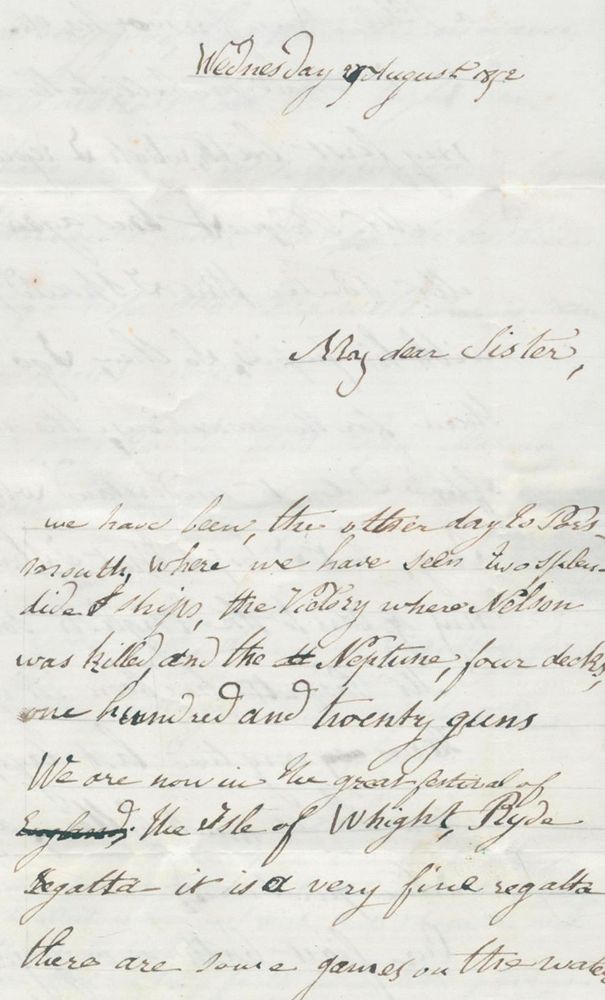 Wednesday August 1852
My dear Sister,
we have been, the other day to Pors-
mouth, where we have seen two splen-
dided ships, the Victory where Nelson
was killed, and the Neptune, four decks,
one hundred and twenty guns
We are now in the great festival of
England; the Isle of Whight, Ryde
regatta it is a very fine regatta
there are some games on the water